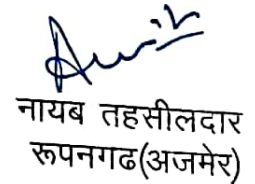 नायब तहसीलदार
रूपनगढ(अजमेर)